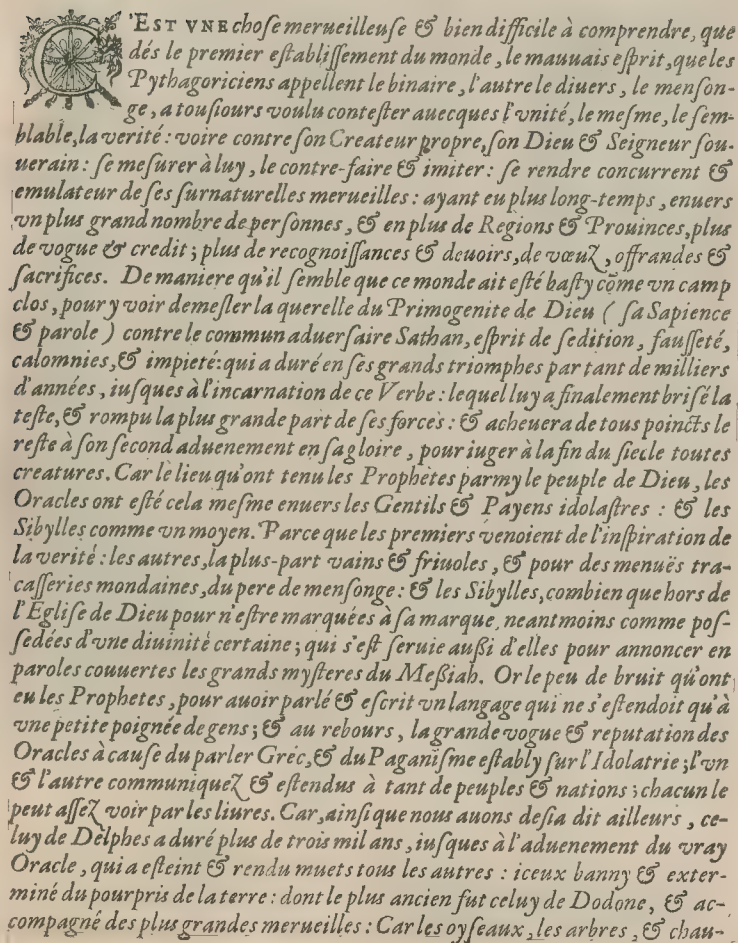 C'EST VNE choſe merueilleuſe & bien difficile à comprendre, que
dés le premier eſtabliſſement du monde, le mauuais eſprit, que les
Pythagoriciens appellent le binaire, l'autre le diuers, le menſon-
ge, a touſiours voulu conteſter auecques l'vnité, le meſme, le ſem-
blable, la verité : voire contre ſon Createur propre, ſon Dieu & Seigneur ſou-
uerain : ſe meſurer à luy, le contre-faire & imiter : ſe rendre concurrent &
emulateur de ſes ſurnaturelles merueilles : ayant eu plus long-temps, enuers
vn plus grand nombre de perſonnes, & en plus de Regions & Prouinces, plus
de vogue & credit ; plus de recognoiſſances & deuoirs, de vœuz, offrandes &
ſacrifices. De maniere qu'il ſemble que ce monde ait eſté baſty cõme vn camp
clos, pour y voir demeſler la querelle du Primogenite de Dieu ( ſa Sapience
& parole ) contre le commun aduerſaire Sathan, eſprit de ſedition, fauſſeté,
calomnies, & impieté : qui a duré en ſes grands triomphes par tant de milliers
d'années, iuſques à l'incarnation de ce Verbe : lequel luy a finalement briſé la
teſte, & rompu la plus grande part de ſes forces : & acheuera de tous poincts le
reſte à ſon ſecond aduenement en ſa gloire, pour iuger à la fin du ſiecle toutes
creatures. Car le lieu qu'ont tenu les Prophetes parmy le peuple de Dieu, les
Oracles ont eſté cela meſme enuers les Gentils & Payens idolaſtres : & les
Sibylles comme vn moyen. Parce que les premiers venoient de l'inſpiration de
la verité : les autres, la plus-part vains & friuoles, & pour des menuës tra-
caſſeries mondaines, du pere de menſonge : & les Sibylles, combien que hors de
l'Egliſe de Dieu pour n'eſtre marquées à ſa marque, neantmoins comme poſ-
ſedées d'vne diuinité certaine ; qui s'eſt ſeruie außi d'elles pour annoncer en
paroles couuertes les grands myſteres du Meßiah. Or le peu de bruit qu'ont
eu les Prophetes, pour auoir parlé & eſcrit vn langage qui ne s'eſtendoit qu'à
vne petite poignée de gens ; & au rebours, la grande vogue & reputation des
Oracles à cauſe du parler Grec, & du Paganiſme eſtably ſur l'Idolatrie ; l'vn
& l'autre communiquez & eſtendus à tant de peuples & nations ; chacun le
peut aſſez voir par les liures. Car, ainſi que nous auons deſia dit ailleurs, ce-
luy de Delphes a duré plus de trois mil ans, iuſques à l'aduenement du vray
Oracle, qui a eſteint & rendu muets tous les autres : iceux banny & exter-
miné du pourpris de la terre : dont le plus ancien fut celuy de Dodone, & ac-
compagné des plus grandes merueilles : Car les oyſeaux, les arbres, & chau-